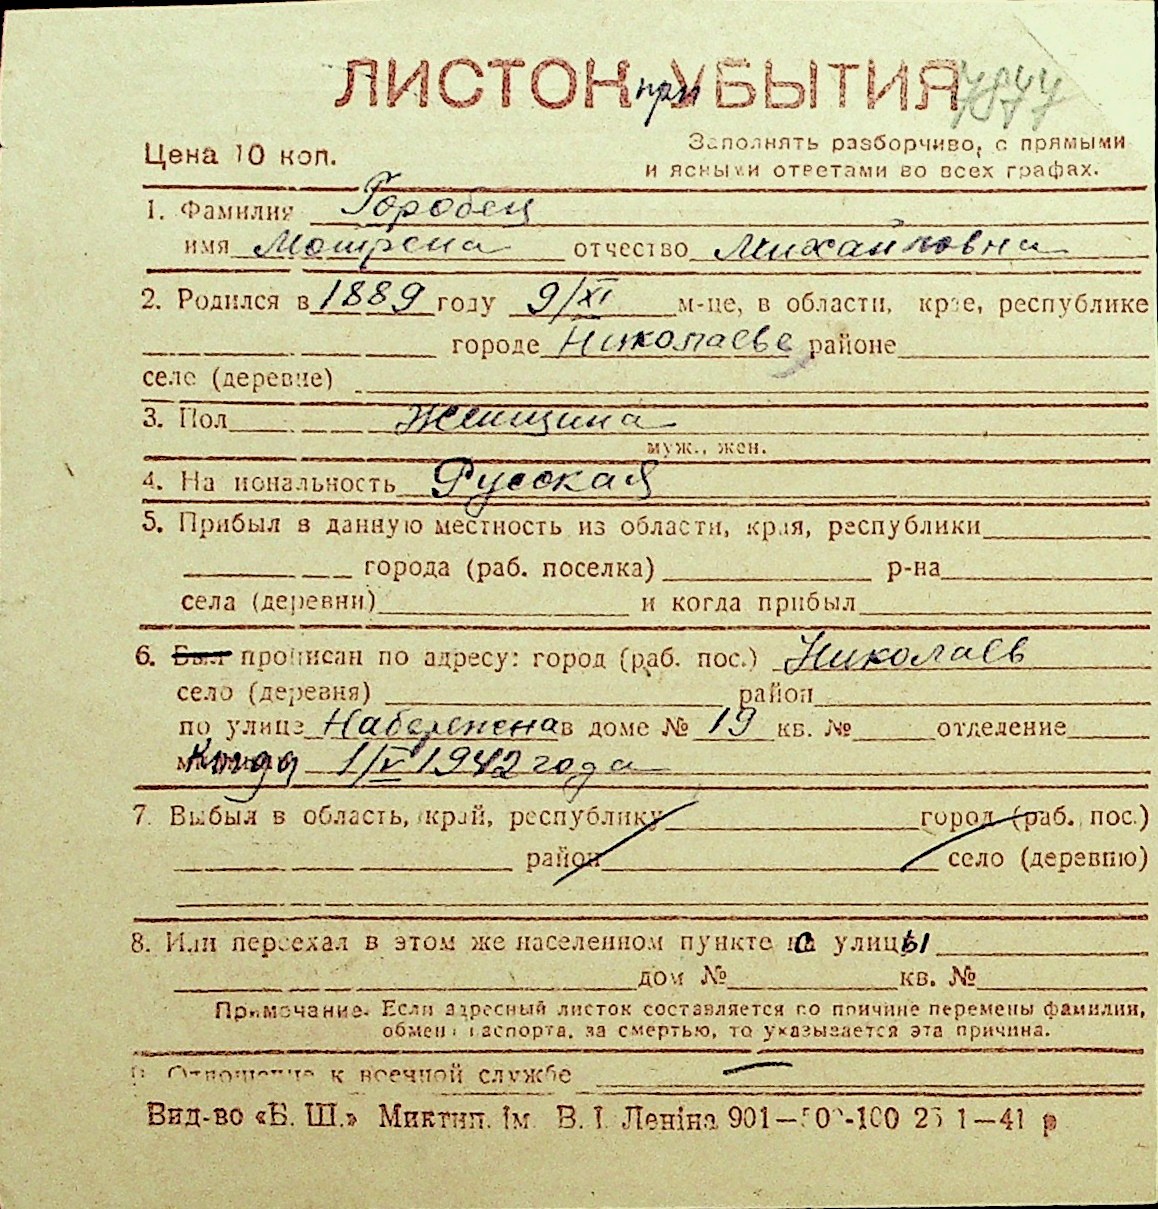 ЛИСТОК при УБЫТИЯ
Цена 10 коп.
Заполнять разборчиво, с прямыми
и ясными ответами во всех графах.
1. Фамилия Горобец
имя Мотрена отчество Михайловна
2. Родился в 1889 году 9/XI м-це, в области, крае, республике
городе Николаеве районе
селе (деревне)
3. Пол Женщина
муж., жен.
4. Национальность Русская
5. Прибыл в данную местность из области, края, республики
города (раб. поселка) р-на
села (деревни) и когда прибыл
6. Был прописан по адресу: город (раб. пос.) Николаев
село (деревня) район
по улице Набережна в доме № 19 кв. № отделение
Когда 1/V 1942 года
7. Выбыл в область, край, республику город (раб. пос.)
район село (деревню)
8. Или переехал в этом же населенном пункте на улицы
дом № кв. №
Примечание. Если адресный листок составляется по причине перемены фамилии,
обмена паспорта, за смертью, то указывается эта причина.
9. Отношение к военной службе —
Вид-во «Б. Ш.» Миктип. Ім. В. І. Леніна 901—500-100 25 1—41 р